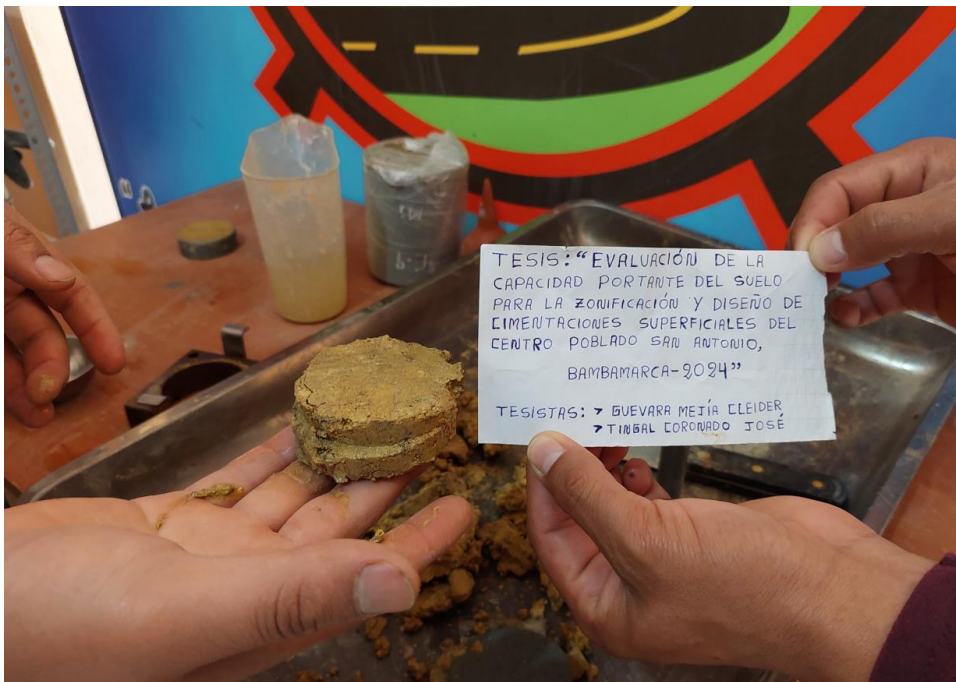 TESIS: "EVALUACIÓN DE LA
CAPACIDAD PORTANTE DEL SUELO
PARA LA ZONIFICACIÓN Y DISEÑO DE
CIMENTACIONES SUPERFICIALES DEL
CENTRO POBLADO SAN ANTONIO,
BAMBAMARCA-2024"
TESISTAS: > GUEVARA MEJÍA CLEIDER
> TINGAL CORONADO JOSÉ